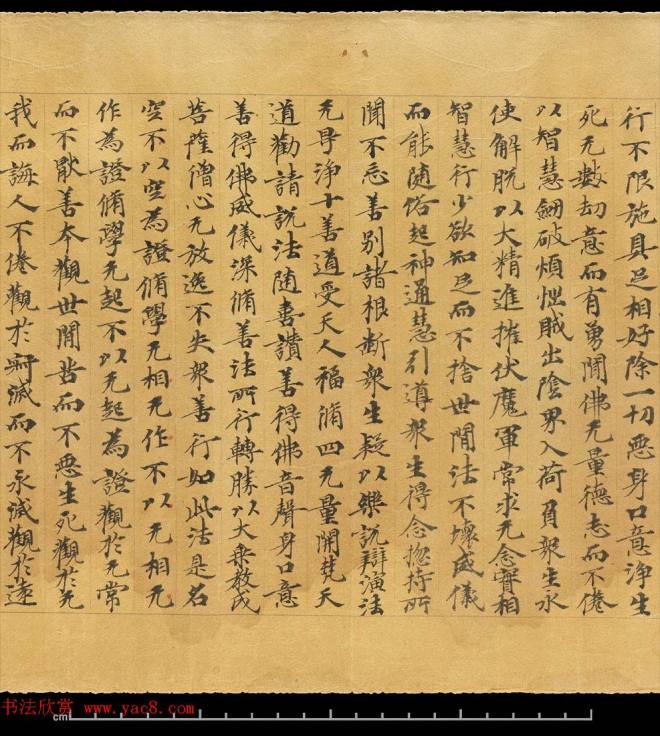 行不限施具足相好除一切惡身口意淨生
死无數劫意而有勇聞佛无量德志而不倦
以智慧劒破煩惱賊出陰界入荷負眾生永
使解脫以大精進摧伏魔軍常求无念實相
智慧行少欲知足而不捨世間法不壞威儀
而能隨俗起神通慧引導眾生得念揔持所
聞不忘善別諸根斷眾生疑以樂說辯演法
无㝵淨十善道受天人福脩四无量開梵天
道勸請說法隨喜讚善得佛音聲身口意
善得佛威儀深脩善法所行轉勝以大乘教成
菩薩僧心无放逸不失眾善行如此法是名
空不以空為證脩學无相无作不以无相无
作為證脩學无起不以无起為證觀於无常
而不厭善本觀世間苦而不惡生死觀於无
我而誨人不倦觀於寂滅而不永滅觀於遠
书法欣赏 www.yac8.com
cm